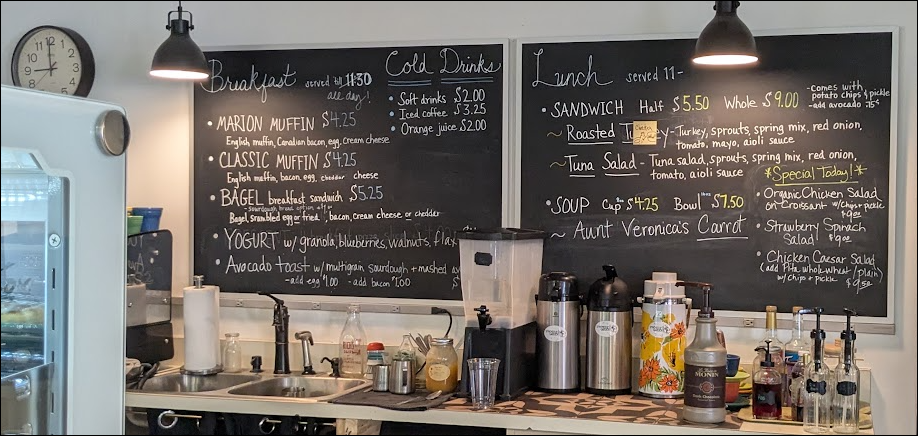 Breakfast served till 11:30
all day!
MARION MUFFIN $4.25
English muffin, Canadian bacon, egg, cream cheese
CLASSIC MUFFIN $4.25
English muffin, bacon, egg, cheddar cheese
BAGEL breakfast sandwich $5.25
-sourdough bread option
Bagel, srambled egg or fried, bacon, cream cheese or cheddar
YOGURT w/ granola, blueberries, walnuts, flax
Avocado toast w/ multigrain sourdough + mashed
-add egg $1.00 -add bacon $1.00
Cold Drinks
• Soft drinks $2.00
• Iced coffee $3.25
• Orange juice $2.00
Lunch served 11-
-comes with
potato chips & pickle
-add avocado 75¢
• SANDWICH Half $5.50 Whole $9.00
~ Roasted -Turkey, sprouts, spring mix, red onion,
tomato, mayo, aioli sauce
~ Tuna Salad - Tuna salad, sprouts, spring mix, red onion,
tomato, aioli sauce
• SOUP Cup $4.25 Bowl $7.50
~ Aunt Veronica's Carrot
*Special Today!*
• Organic Chicken Salad
on Croissant w/chips + pickle
$9.00
• Strawberry Spinach
Salad $9.00
• Chicken Caesar Salad
(add Pita whole wheat/plain)
w/ Chips + pickle $9.50
MONIN